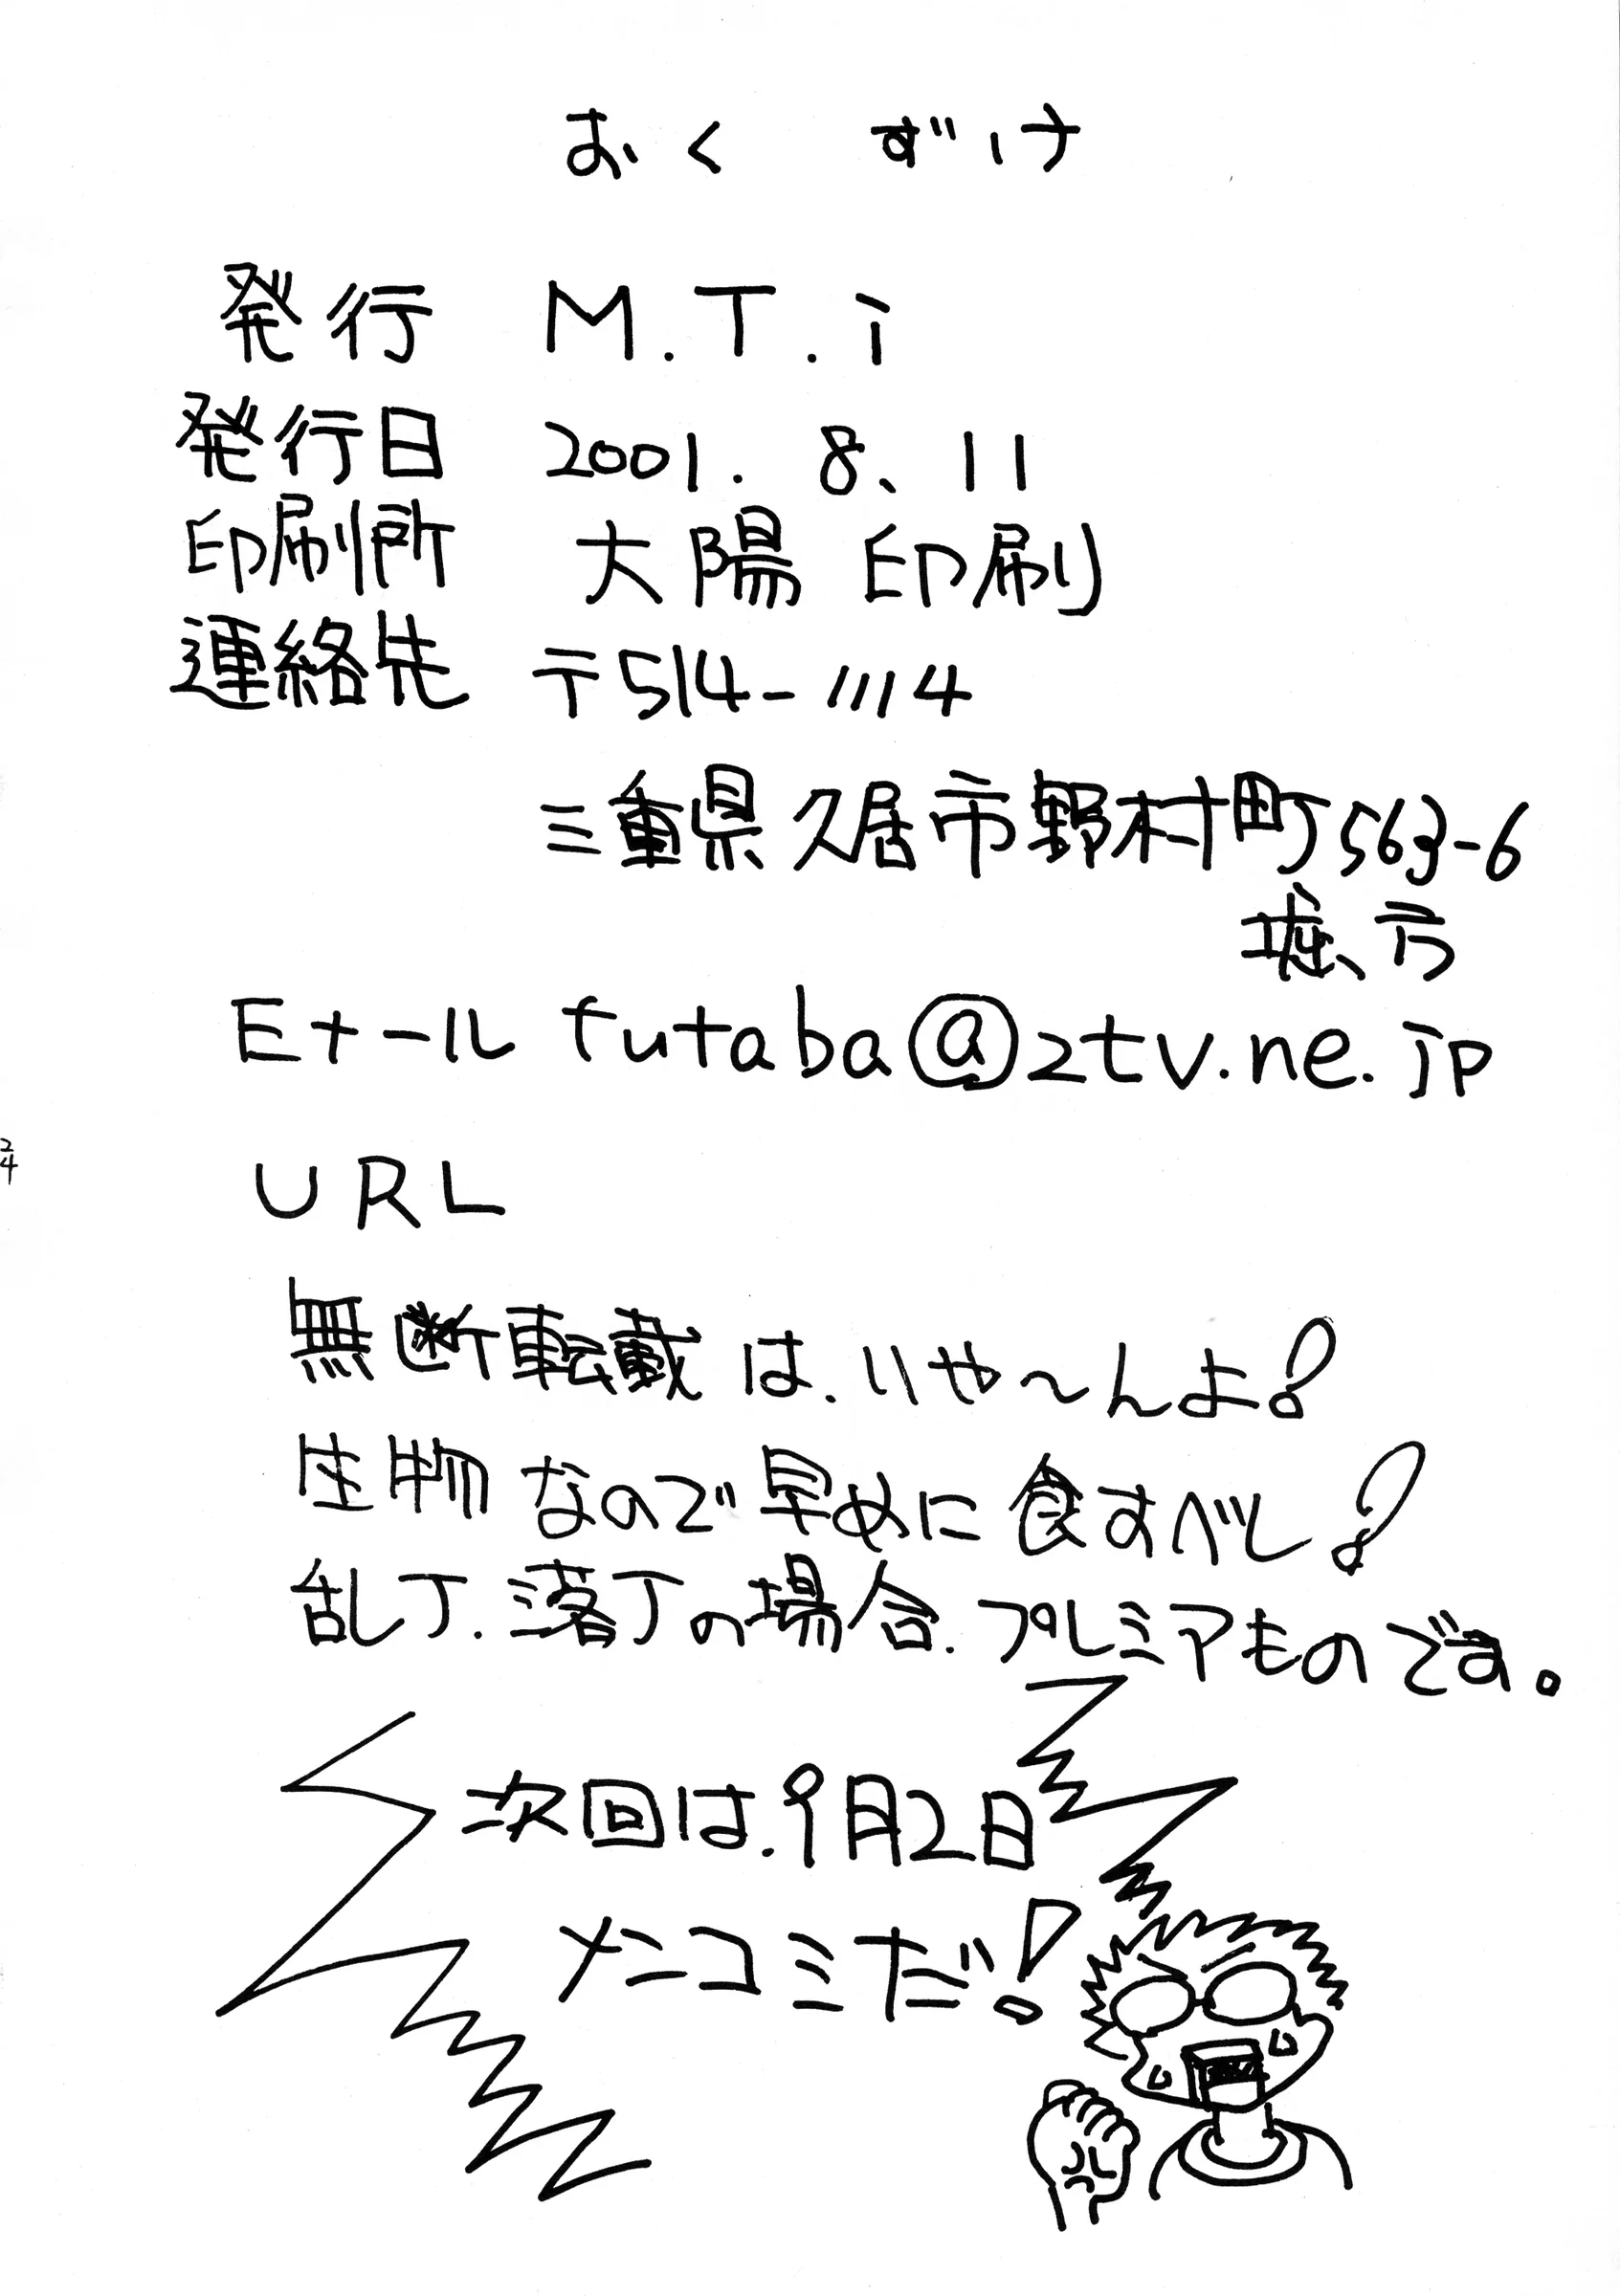 おくずけ
発行 M.T.i
発行日 2001. 8、11
印刷所 大陽印刷
連絡先 〒514-1114
三重県久居市野村町563-6
堀方
Eナール tutaba@ztv.ne.jp
URL
無断転載は、いや〜んよ!
生物なので早めに食すべし!
乱丁、落丁の場合、プレミアものです。
次回は、9月2日
メニコミだ!
24